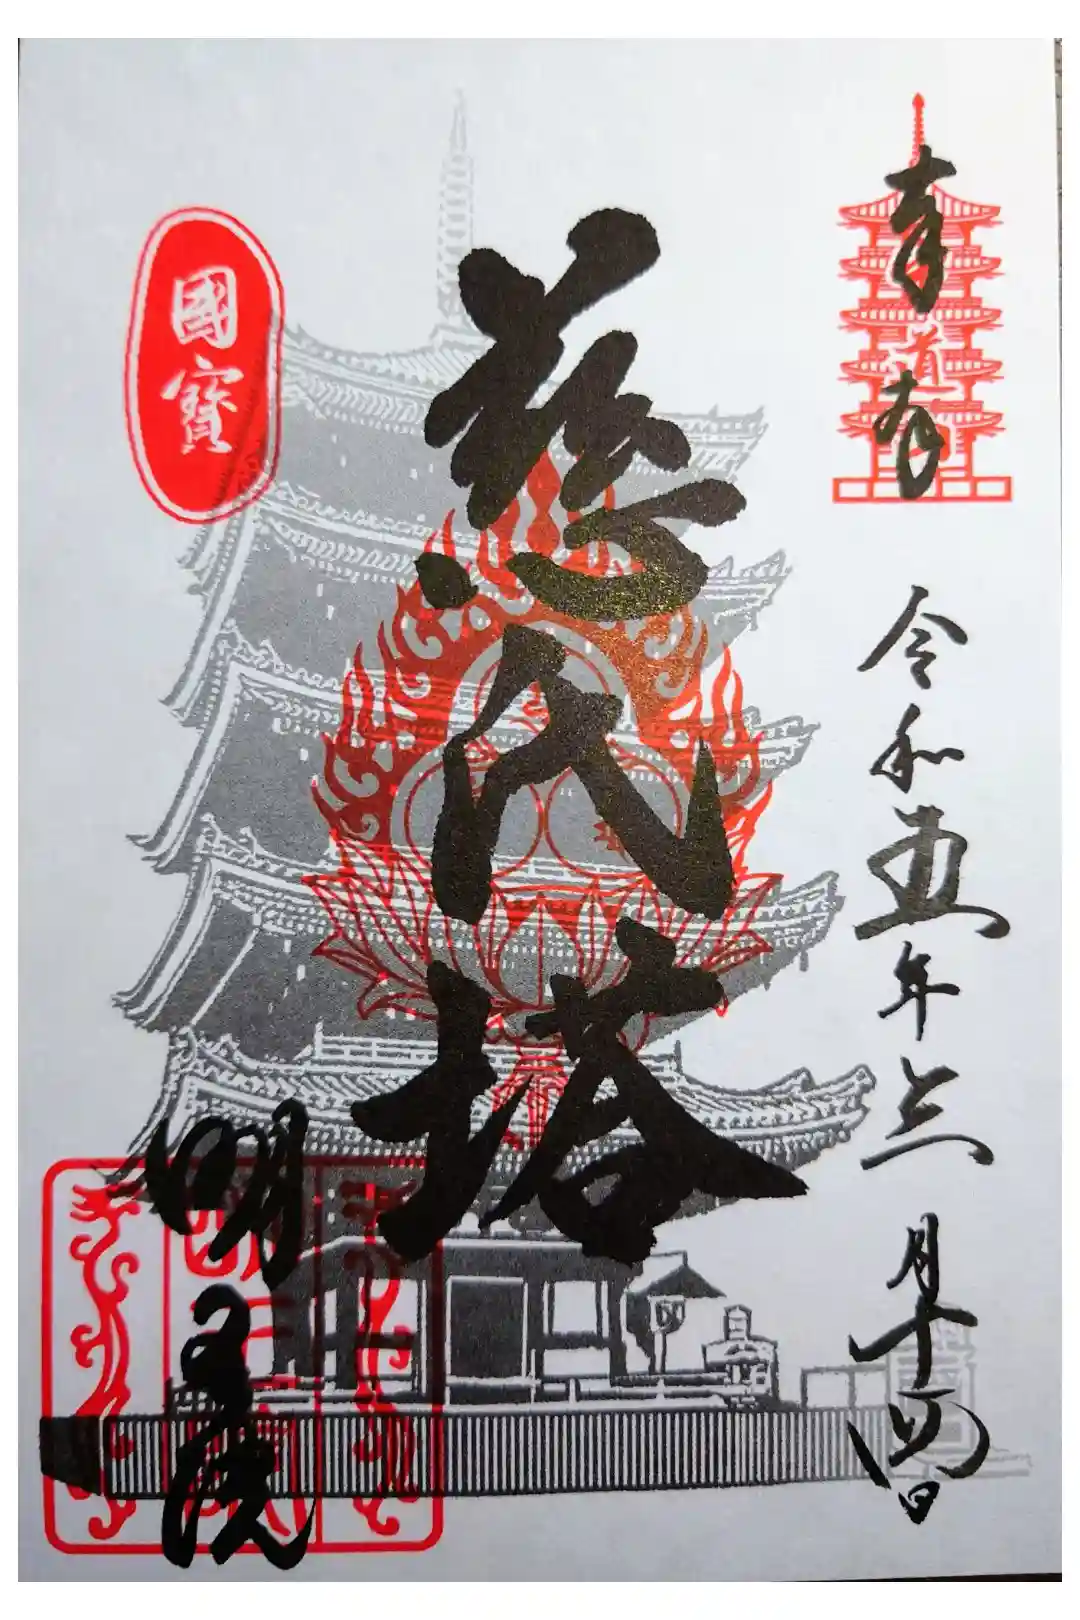 奉拝
令和五年三月十四日
慈氏塔
國寶
明王院